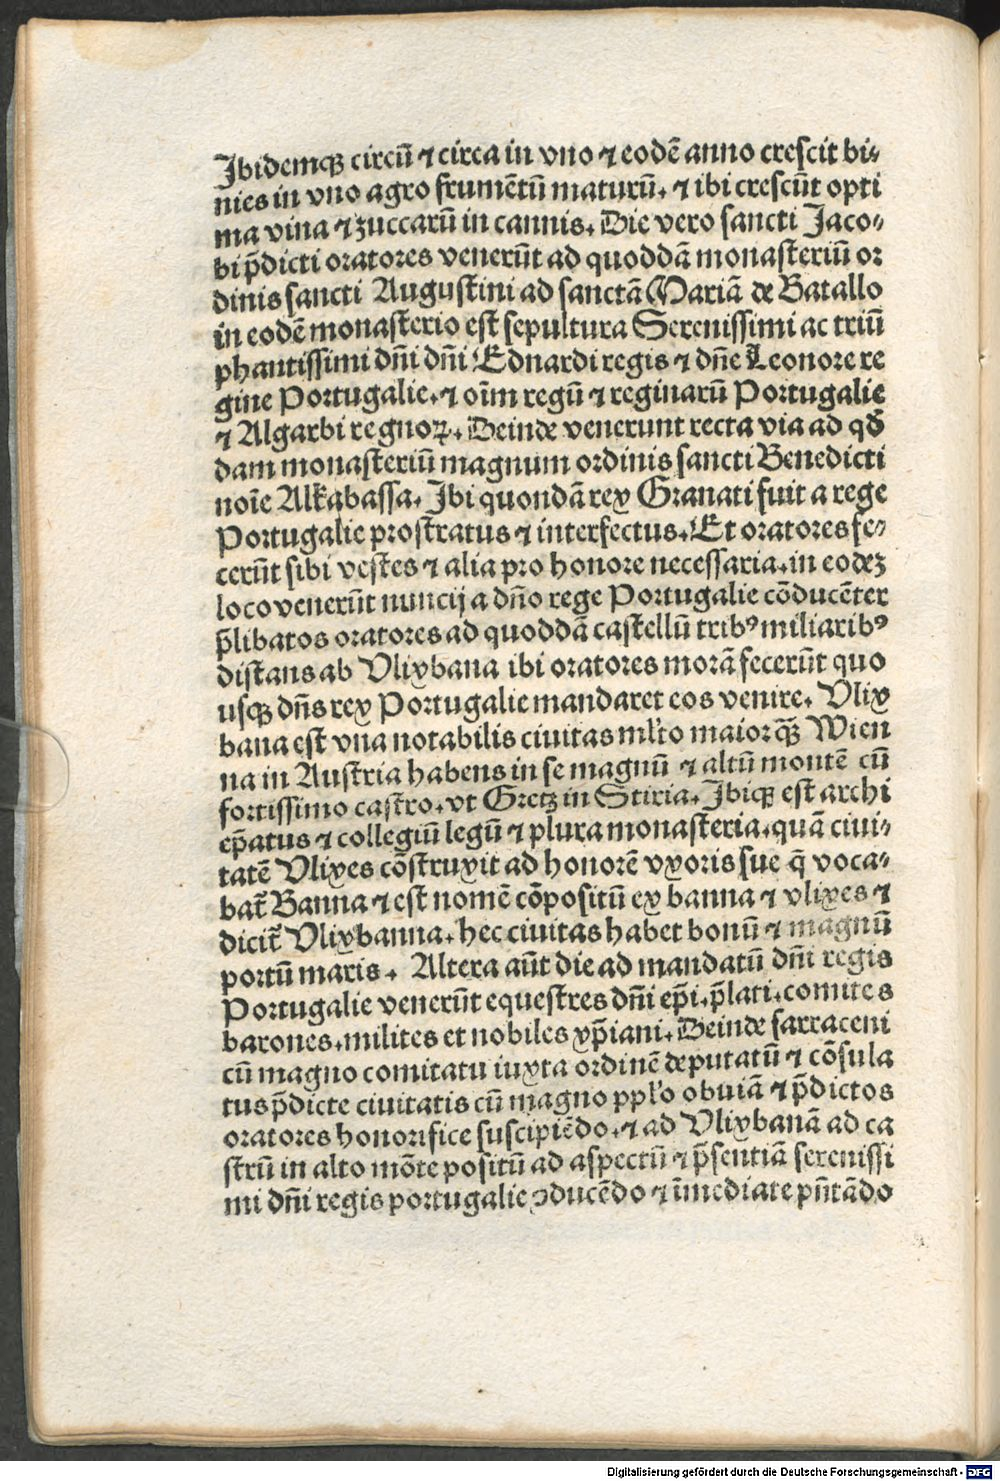 Ibidemqꝫ circū ⁊ circa in vno ⁊ eodē anno crescit bi-
nies in vno agro frumētū maturū. ⁊ ibi crescūt opti
ma vina ⁊ zuccarū in cannis. Die vero sancti Jaco-
bi p̄dicti oratores venerūt ad quoddā monasteriū or
dinis sancti Augustini ad sanctā Mariā de Batallo
in eodē monasterio est sepultura Serenissimi ac triū
phantissimi dn̄i dn̄i Ednardi regis ⁊ dn̄e Leonore re
gine Portugalie. ⁊ oīm regū ⁊ reginarū Portugalie
⁊ Algarbi regnoꝝ. Deinde venerunt recta via ad qd̄
dam monasteriū magnum ordinis sancti Benedicti
noīe Alkabassa. Ibi quondā rex Granati fuit a rege
Portugalie prostratus ⁊ interfectus. Et oratores fe-
cerūt sibi vestes ⁊ alia pro honore necessaria. in eodeꝫ
loco venerūt nuncij a dn̄o rege Portugalie cōducēter
p̄libatos oratores ad quoddā castellū tribꝰ miliaribꝰ
distans ab Vlixbana ibi oratores morā fecerūt quo
usqꝫ dn̄s rex Portugalie mandaret eos venire. Vlix
bana est vna notabilis ciuitas ml̄to maior qꝫ̄ Wien
na in Austria habens in se magnū ⁊ altū montē cū
fortissimo castro. vt Gretz in Stiria. Ibiqꝫ est archi
ep̄atus ⁊ collegiū legū ⁊ plura monasteria. quā ciui-
tatē Vlixes cōstruxit ad honorē vxoris sue q̄ voca-
bat̄ Banna ⁊ est nomē cōpositū ex banna ⁊ vlixes ⁊
dicit̄ Vlixbanna. hec ciuitas habet bonū ⁊ magnū
portū maris. Altera aūt die ad mandatū dn̄i regis
Portugalie venerūt equestres dn̄i ep̄i. p̄lati. comites
barones. milites et nobiles xp̄iani. Deinde sarraceni
cū magno comitatu iuxta ordinē deputatū ⁊ cōsula
tus p̄dicte ciuitatis cū magno ppl̄o obuiā ⁊ p̄dictos
oratores honorifice suscipiēdo. ⁊ ad Vlixbanā ad ca
strū in alto mōte positū ad aspectū ⁊ p̄sentiā serenissi
mi dn̄i regis portugalie ꝯducēdo ⁊ īmediate pn̄tādo
Digitalisierung gefördert durch die Deutsche Forschungsgemeinschaft - DFG